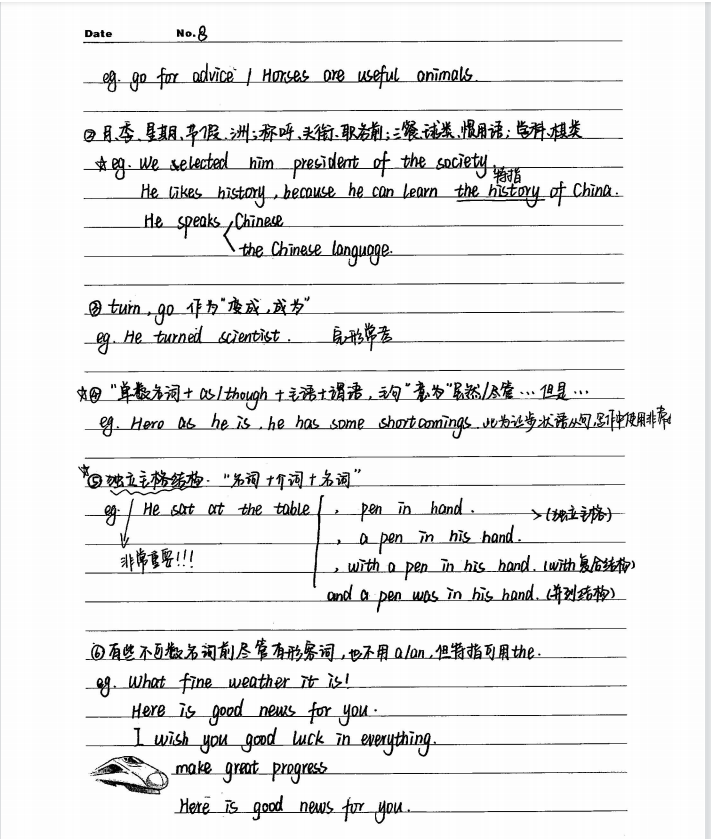 Date No. 8
eg. go for advice / Horses are useful animals.
② 月、季、星期、节假、洲;称呼、头衔、职务前;三餐、球类、惯用语;学科、棋类
☆eg. We selected him president of the society.
特指
He likes history, because he can learn the history of China.
He speaks Chinese
the Chinese language.
③ turn, go 作为"变成,成为"
eg. He turned scientist. 完形常考
☆④ "单数名词+as/though+主语+谓语,主句"意为"虽然/尽管…但是…
eg. Hero as he is, he has some shortcomings. 此为让步状语从句,写作中使用非常
☆⑤ 独立主格结构. "名词+介词+名词"
eg. He sat at the table , pen in hand. >(独立主格)
, a pen in his hand.
非常重要!!! , with a pen in his hand. (with复合结构)
and a pen was in his hand. (并列结构)
⑥ 有些不可数名词前尽管有形容词,也不用a/an,但特指可用the.
eg. What fine weather it is!
Here is good news for you.
I wish you good luck in everything.
make great progress
Here is good news for you.